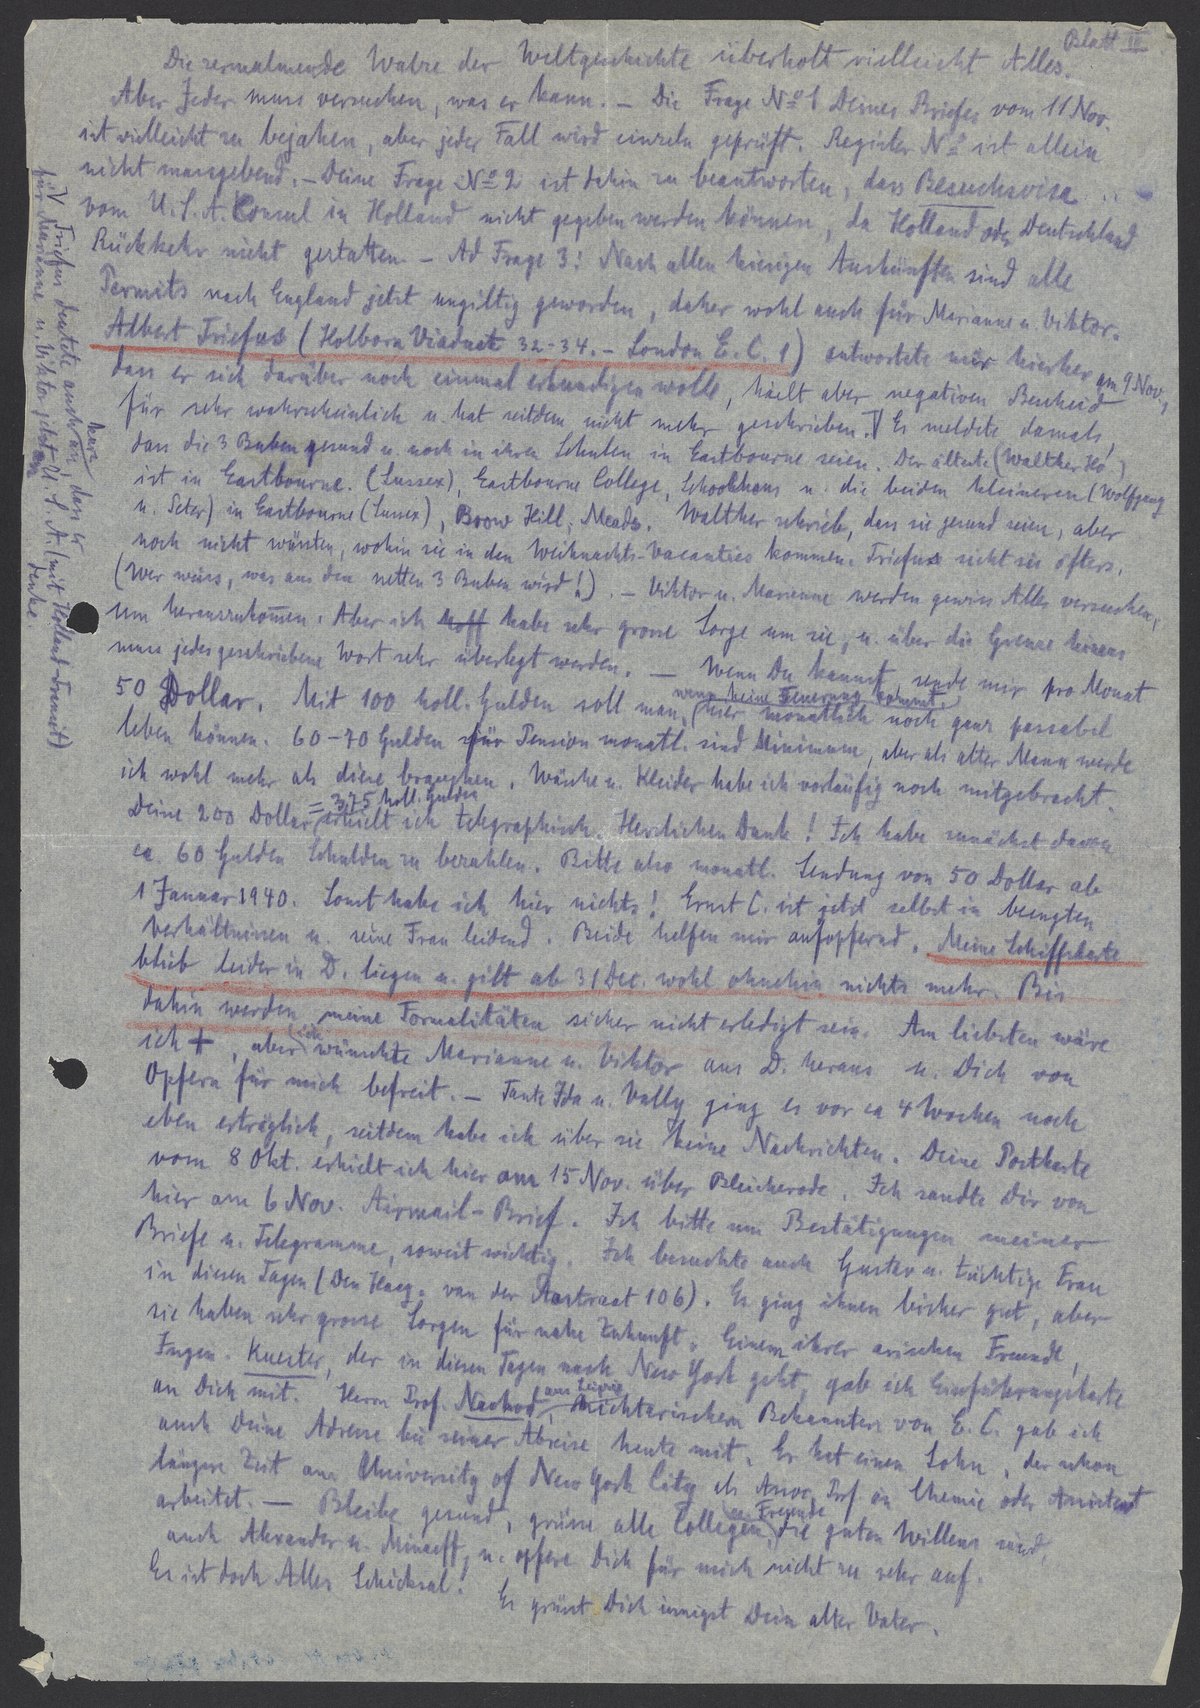 Blatt II
Die zermalmende Walze der Weltgeschichte überholt vielleicht Alles.
Aber Jeder muss versuchen, was er kann. – Die Frage No 1 Deines Briefes vom 11 Nov.
ist vielleicht zu bejahen, aber jeder Fall wird einzeln geprüft. Register No ist allein
nicht massgebend. – Deine Frage No 2 ist dahin zu beantworten, dass Besuchsvisa
vom U.S.A. Consul in Holland nicht gegeben werden können, da Holland oder Deutschland
Rückkehr nicht gestatten. – Ad Frage 3: Nach allen hiesigen Auskünften sind alle
Permits nach England jetzt ungiltig geworden, daher wohl auch für Marianne u. Viktor.
Albert Triefus (Holborn Viaduct 32-34. – London E.C. 1) antwortete mir hierher am 9 Nov.,
dass er sich darüber noch einmal erkundigen wolle, hielt aber negativen Bescheid
für sehr wahrscheinlich u. hat seitdem nicht mehr geschrieben. V Er meldete damals,
dass die 3 Buben gesund u. noch in ihren Schulen in Eastbourne seien. Der älteste (Walther Ho!)
ist in Eastbourne. (Sussex), Eastbourne College, Schoolhaus u. die beiden kleineren (Wolfgang
u. Peter) in Eastbourne (Sussex), Brow Hill, Meads. Walther schrieb, dass sie gesund seien, aber
noch nicht wüssten, wohin sie in den Weihnachts-Vacanties kommen. Triefus sieht sie öfters.
(Wer weiss, was aus den netten 3 Buben wird!). – Viktor u. Marianne werden gewiss Alles versuchen,
um herauszukommen. Aber ich hoff habe sehr grosse Sorge um sie, u. über die Grenze hinaus
muss jedes geschriebene Wort sehr überlegt werden. – Wenn Du kannst, sende mir pro Monat
50 Dollar. Mit 100 holl. Gulden soll man, (wenn keine Teuerung kommt,) hier monatlich noch ganz passabel
leben können. 60-70 Gulden für Pension monatl. sind Minimum, aber als alter Mann werde
ich wohl mehr als diese brauchen. Wäsche u. Kleider habe ich vorläufig noch mitgebracht.
Deine 200 Dollar = 375 holl. Gulden erhielt ich telegraphisch. Herzlichen Dank! Ich habe zunächst davon
ca. 60 Gulden Schulden zu bezahlen. Bitte also monatl. Sendung von 50 Dollar ab
1 Januar 1940. Sonst habe ich hier nichts! Ernst C. ist jetzt selbst in beengten
Verhältnissen u. seine Frau leidend. Beide helfen mir aufopfernd. Meine Schiffskarte
blieb leider in D. liegen u. gilt ab 31 Dec. wohl ohnehin nichts mehr. Bis
dahin werden meine Formalitäten sicher nicht erledigt sein. Am liebsten wäre
ich +, aber ich wünschte Marianne u. Viktor aus D. heraus u. Dich von
Opfern für mich befreit. – Tante Ida u. Vally ging es vor ca 4 Wochen noch
eben erträglich, seitdem habe ich über sie keine Nachrichten. Deine Postkarte
vom 8 Okt. erhielt ich hier am 15 Nov. über Bleicherode. Ich sandte Dir von
hier am 6 Nov. Airmail-Brief. Ich bitte um Bestätigungen meiner
Briefe u. Telegramme, soweit wichtig. Ich besuchte auch Gustav u. tüchtige Frau
in diesen Tagen (Den Haag, van der Aastraat 106). Es ging ihnen bisher gut, aber
sie haben sehr grosse Sorgen für nahe Zukunft. Einem ihrer arischen Freunde,
Ingen. Kuester, der in diesen Tagen nach New York geht, gab ich Einführungskarte
an Dich mit. Herrn Prof. Nachod, aus Leipzig, nichtarischem Bekannten von E.C. gab ich
auch Deine Adresse bei seiner Abreise heute mit. Er hat einen Sohn, der schon
längere Zeit am University of New York City als Assoc. Prof. in Chemie oder Assistent
arbeitet. – Bleibe gesund, grüsse alle Collegen, u. Freunde die guten Willens sind,
auch Alexander u. Minaeff, u. opfere Dich für mich nicht zu sehr auf.
Es ist doch Alles Schicksal!
Es grüsst Dich innigst Dein alter Vater.
V Triefus deutete auch kurz an, dass er
für Marianne u. Viktor jetzt an U.S.A. (mit Holland-Transit)
denke.